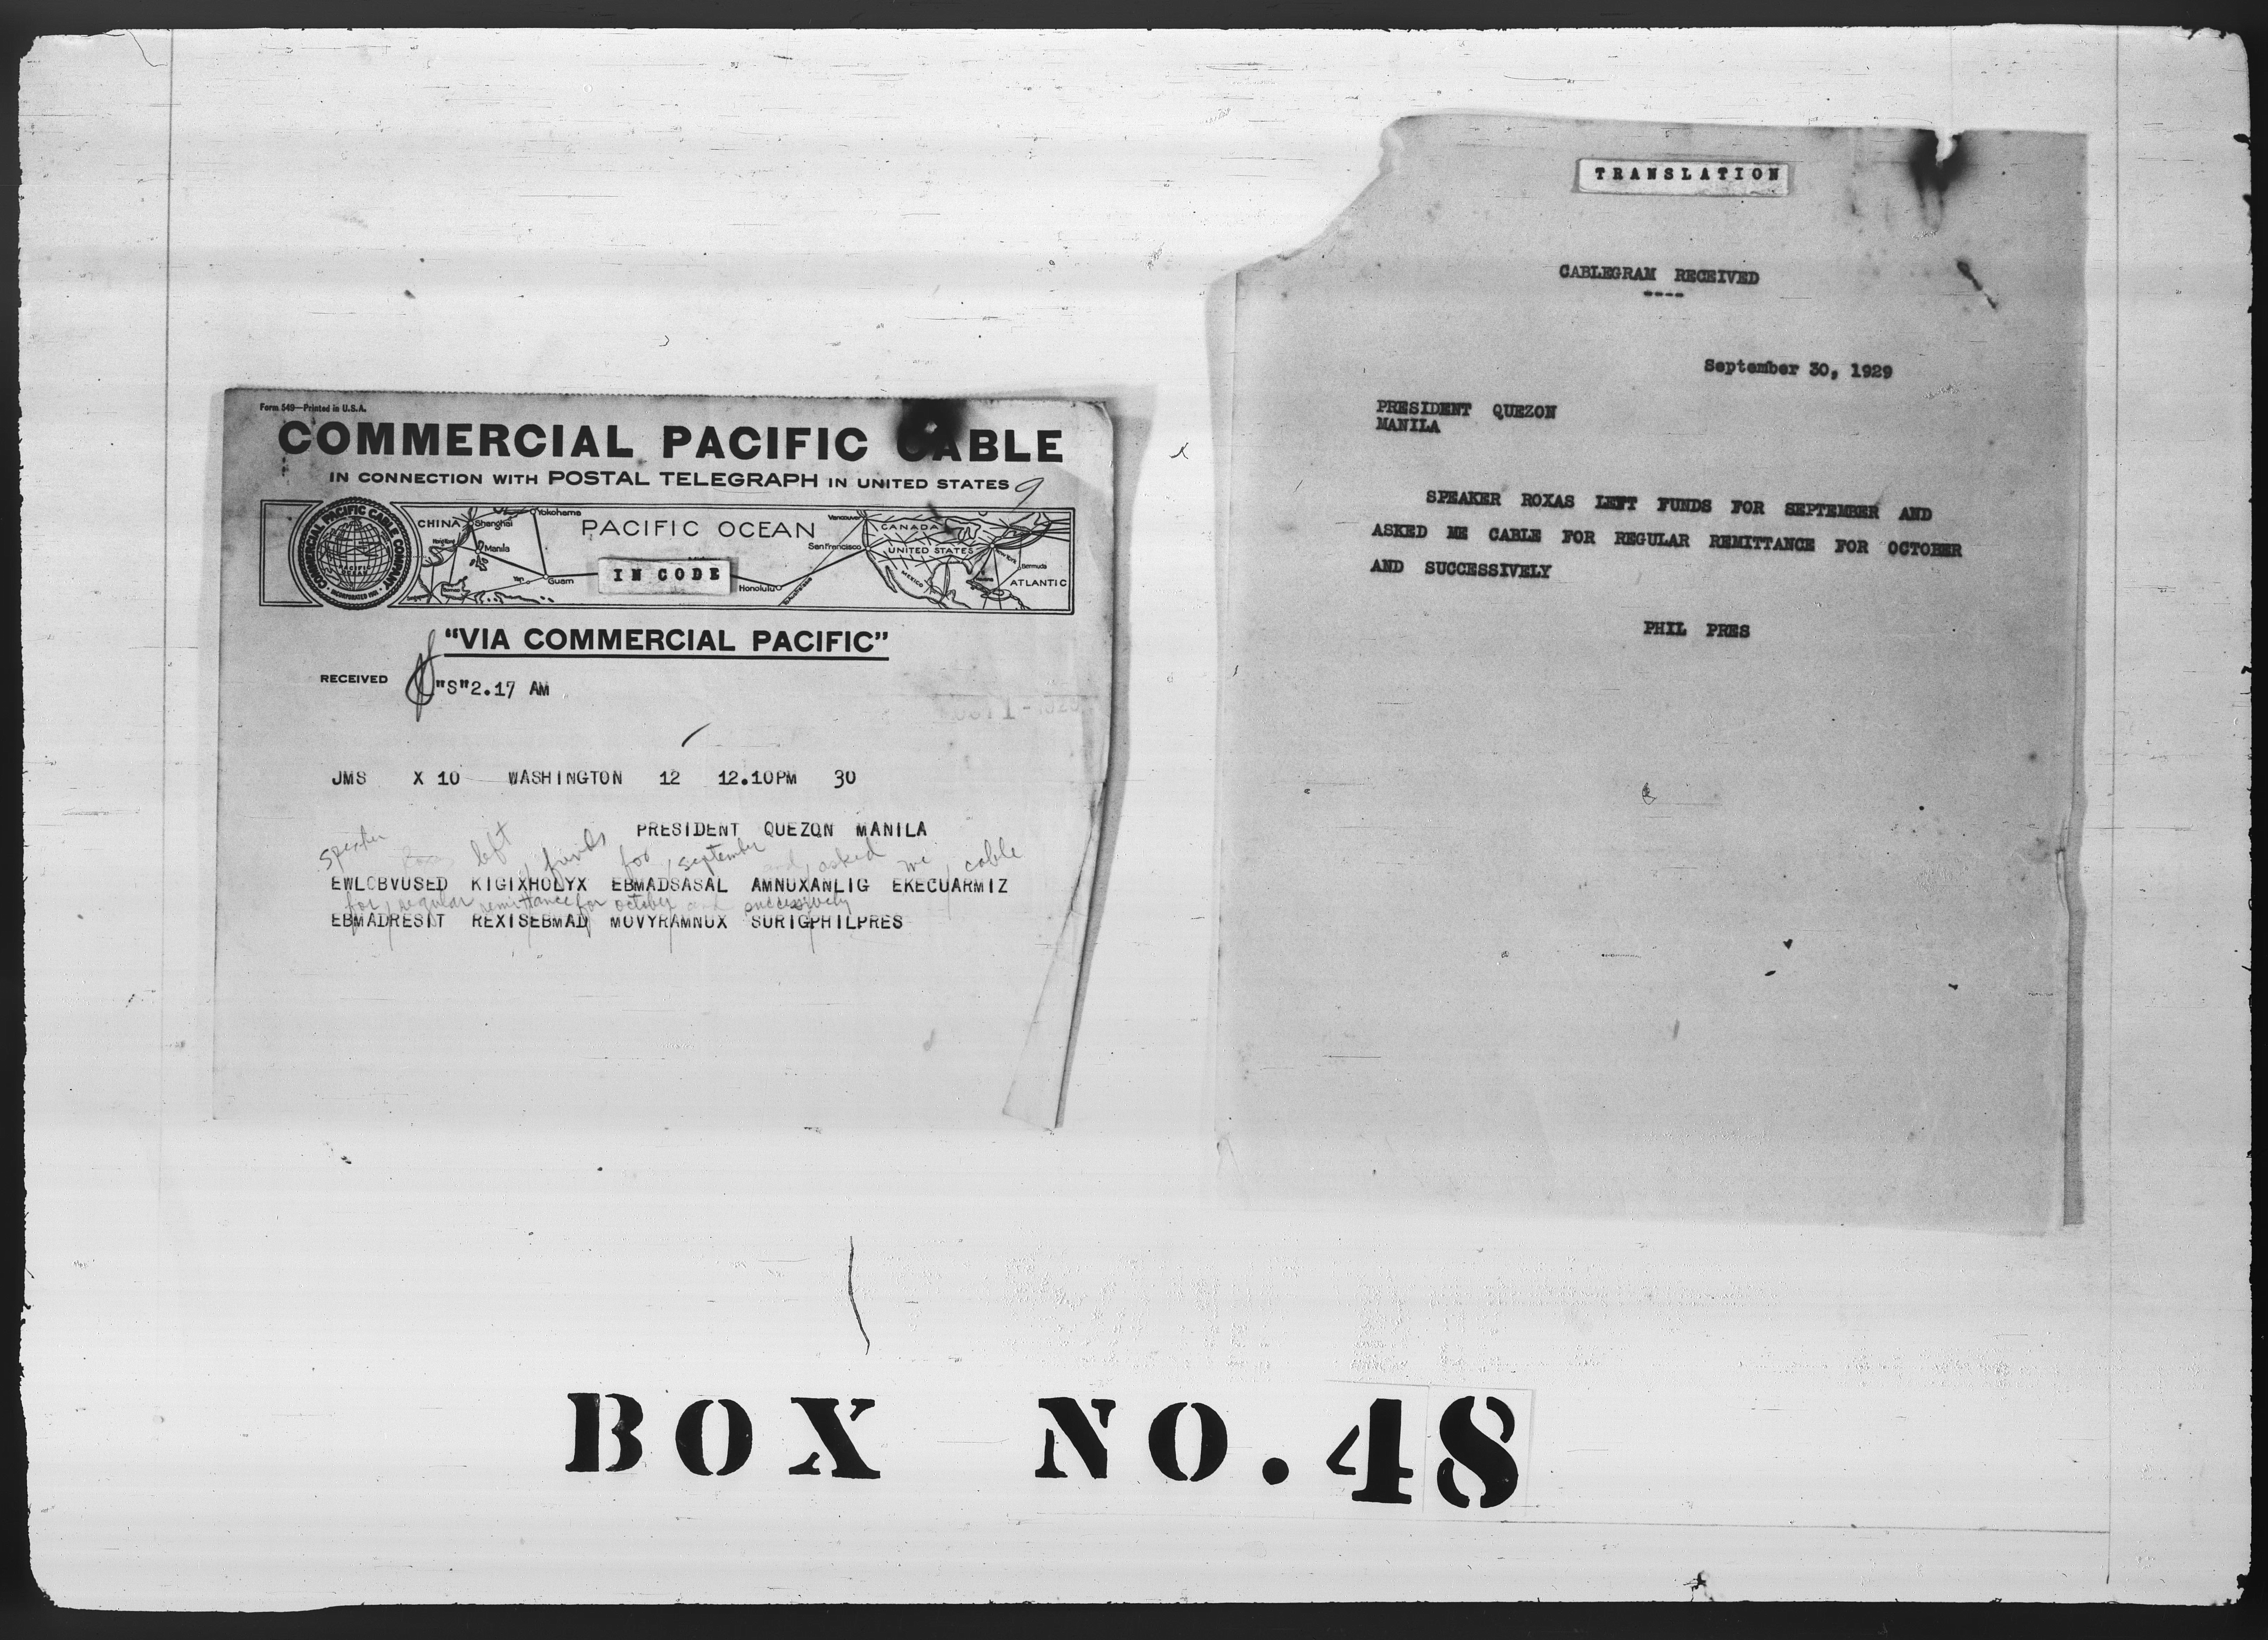 Form 549—Printed in U.S.A.
COMMERCIAL PACIFIC CABLE
IN CONNECTION WITH POSTAL TELEGRAPH IN UNITED STATES
9
COMMERCIAL PACIFIC CABLE COMPANY
PACIFIC OCEAN
INCORPORATED 1901
CHINA
Shanghai
Yokohama
Hong Kong
Manila
Yap
Guam
PACIFIC OCEAN
IN CODE
Honolulu
Vancouver
San Francisco
CANADA
UNITED STATES
New York
MEXICO
Bermuda
ATLANTIC
"VIA COMMERCIAL PACIFIC"
RECEIVED "S"2.17 AM
JMS X 10 WASHINGTON 12 12.10PM 30
PRESIDENT QUEZON MANILA
speaker Roxas left funds for september and asked me cable
EWLOBVUSED KIGIXHOLYX EBMADSASAL AMNUXANLIG EKECUARMIZ
for regular remittance for october and successively
EBMADRESIT REXISEBMAD MOVYRAMNUX SURIGPHILPRES
TRANSLATION
CABLEGRAM RECEIVED
----
September 30, 1929
PRESIDENT QUEZON
MANILA
SPEAKER ROXAS LEFT FUNDS FOR SEPTEMBER AND
ASKED ME CABLE FOR REGULAR REMITTANCE FOR OCTOBER
AND SUCCESSIVELY
PHIL PRES
BOX NO. 48